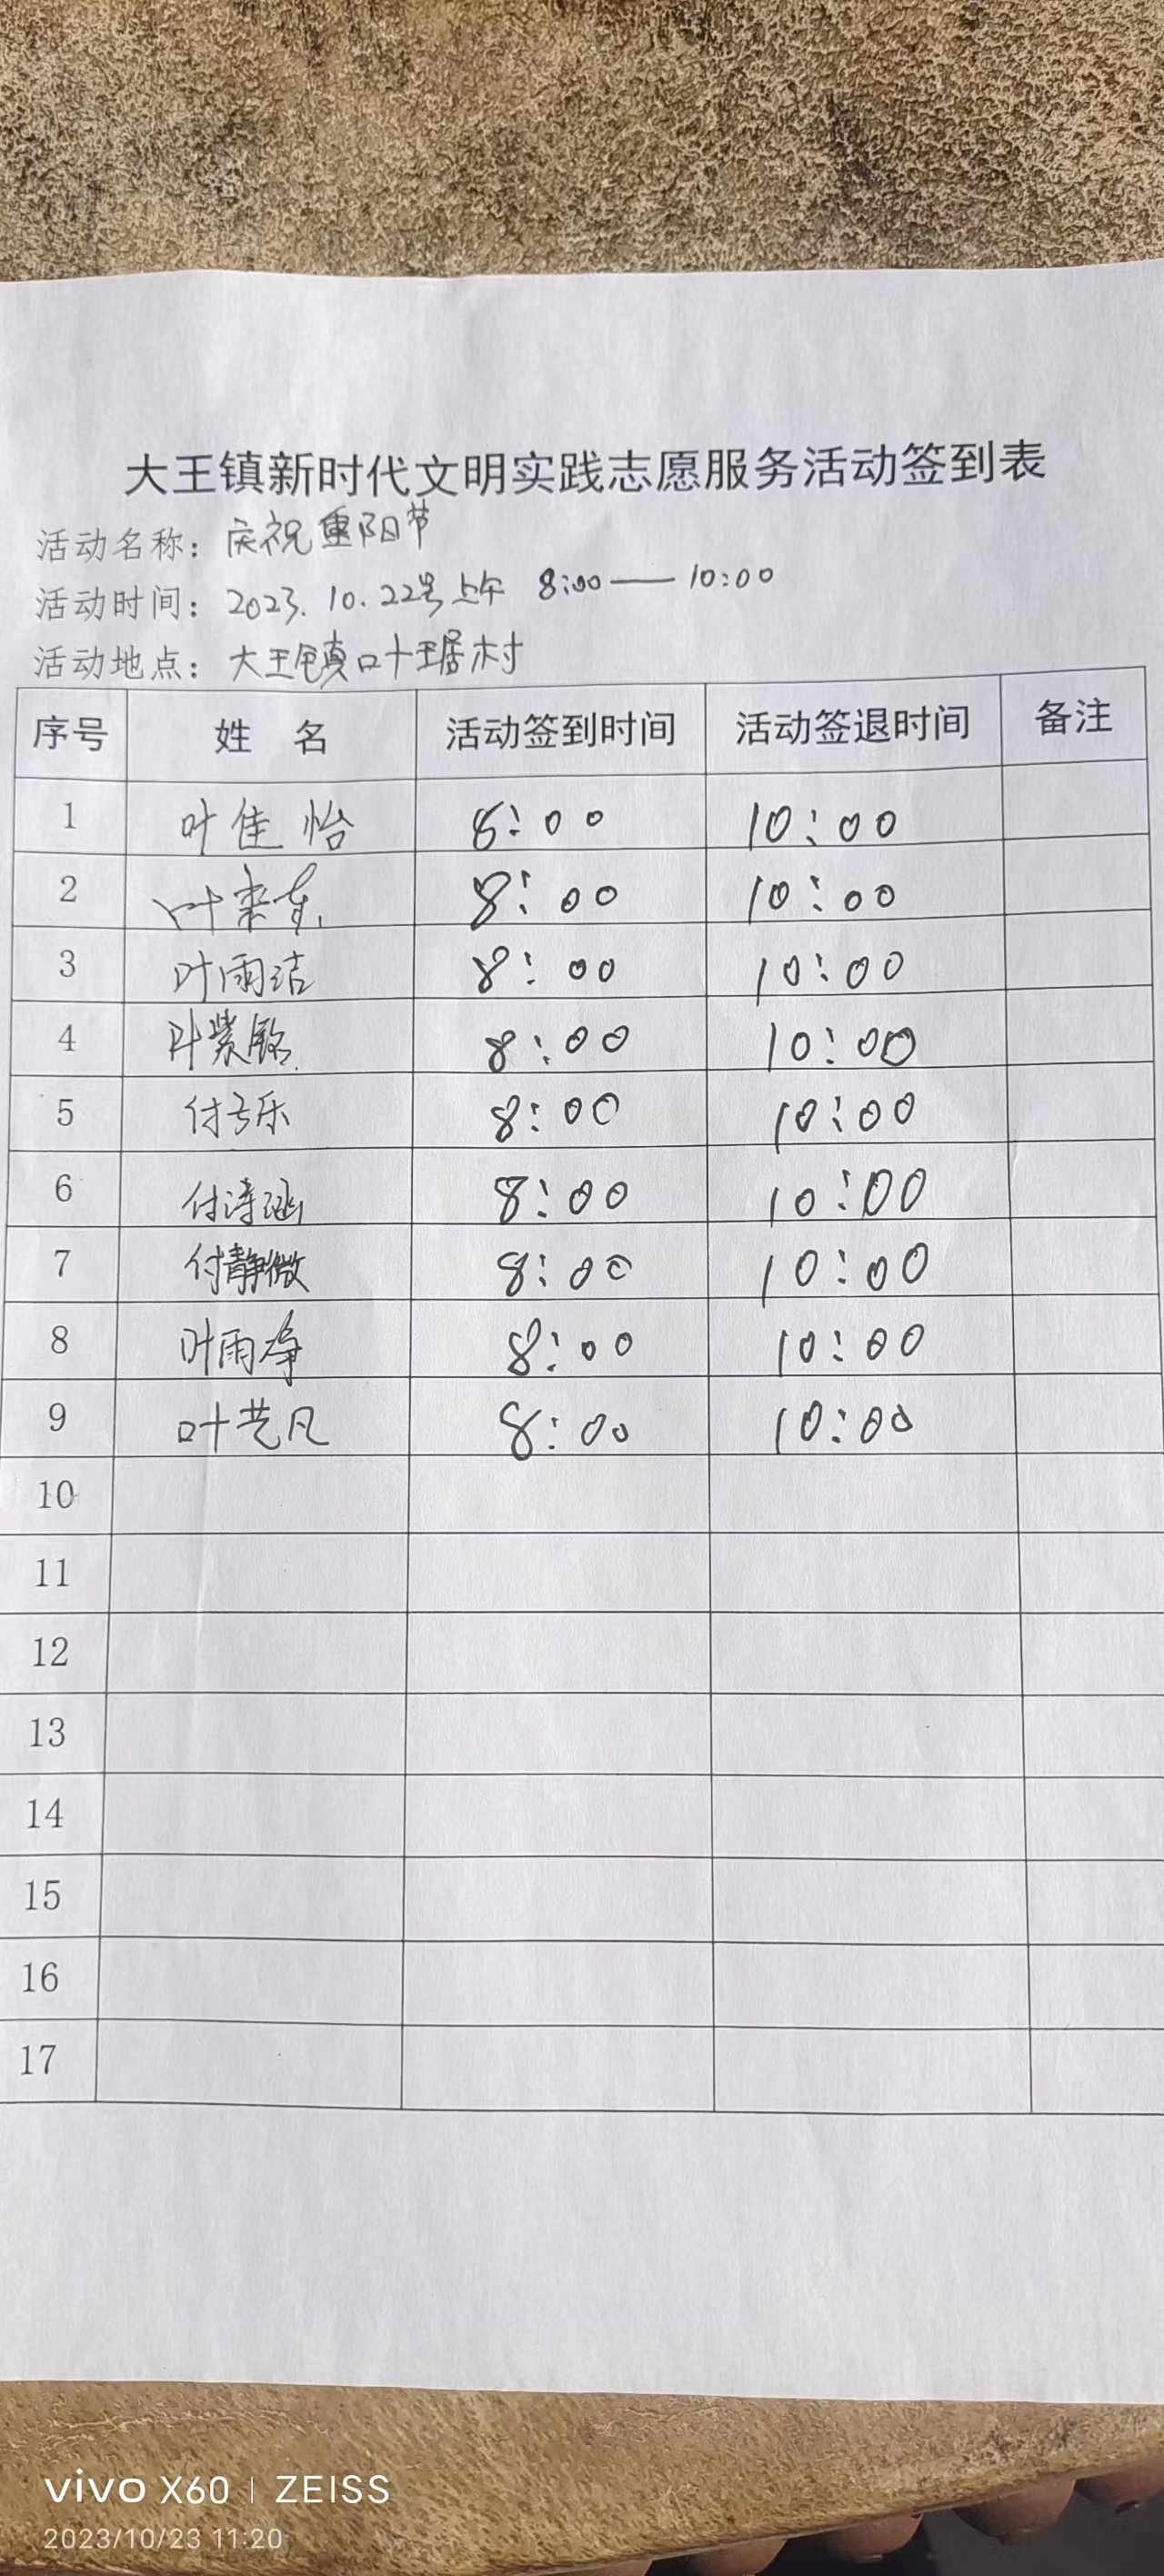 大王镇新时代文明实践志愿服务活动签到表
活动名称：庆祝重阳节
活动时间：2023.10.22号上午 8:00——10:00
活动地点：大王镇叶琚村
序号 姓名 活动签到时间 活动签退时间 备注
1 叶佳怡 8:00 10:00
2 叶来东 8:00 10:00
3 叶雨洁 8:00 10:00
4 叶紫 8:00 10:00
5 付乐 8:00 10:00
6 付涵 8:00 10:00
7 付静微 8:00 10:00
8 叶雨净 8:00 10:00
9 叶艺凡 8:00 10:00
10
11
12
13
14
15
16
17
vivo X60 | ZEISS
2023/10/23 11:20